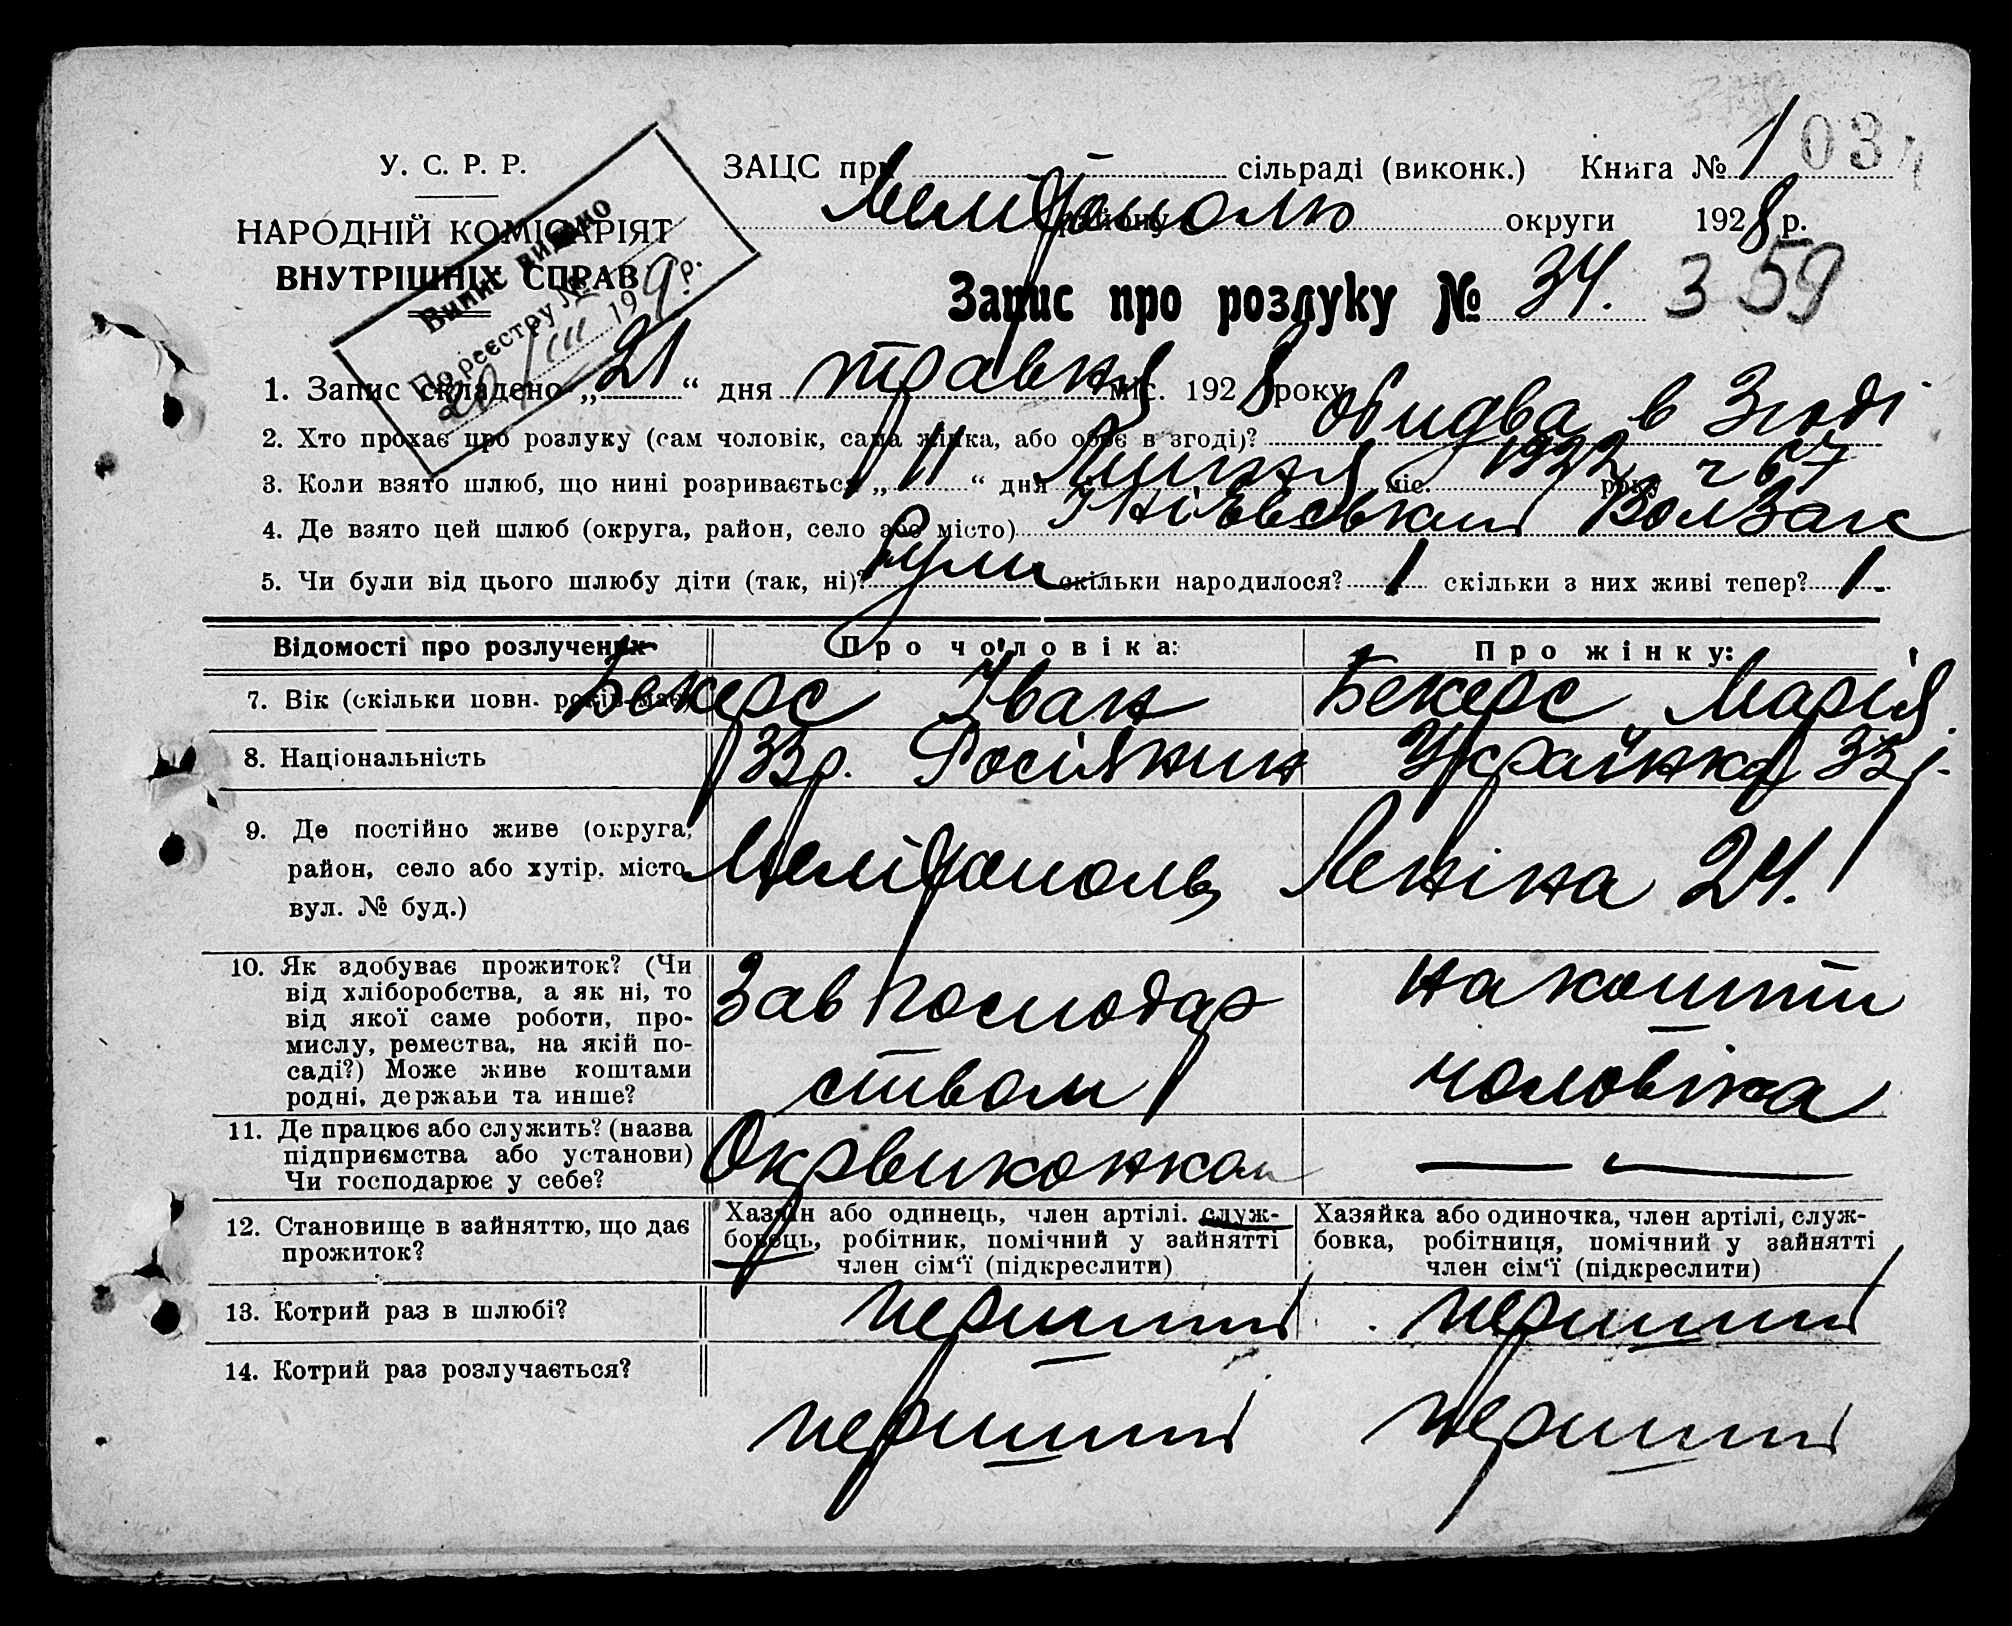 У. С. Р. Р.
НАРОДНІЙ КОМІСАРІЯТ
ВНУТРІШНІХ СПРАВ
Випис видано
По реєстру №
20/III 199 р.
ЗАЦС при сільраді (виконк.) Книга № 1 034
Мелітополю району округи 1928 р.
Запис про розлуку № 34. 3 59
1. Запис складено „21“ дня травня міс. 1928 року
2. Хто прохає про розлуку (сам чоловік, сама жінка, або обоє в згоді)? Обидва в Згоді
3. Коли взято шлюб, що нині розривається „11“ дня Липня міс. 1922 року ч 67
4. Де взято цей шлюб (округа, район, село або місто) ВолЗагс
5. Чи були від цього шлюбу діти (так, ні)? були скільки народилося? 1 скільки з них живі тепер? 1.
Відомості про розлучених Про чоловіка: Про жінку:
Бекерс Іван Бекерс Марія
7. Вік (скільки повн. років має)
8. Національність 33 р. Росіянин Українка 33 р.
9. Де постійно живе (округа, район, село або хутір, місто вул. № буд.)
Мелітополь Леніна 24.
10. Як здобуває прожиток? (Чи
від хліборобства, а як ні, то
від якої саме роботи, про-
мислу, ремества, на якій по-
саді?) Може живе коштами
родні, держави та инше?
Зав Господар
ством
на кошти
чоловіка
11. Де працює або служить? (назва
підприємства або установи)
Чи господарює у себе?
Окрвиконком
12. Становище в зайняттю, що дає
прожиток?
Хазяїн або одинець, член артілі, служ-
бовець, робітник, помічний у зайнятті
член сім'ї (підкреслити)
Хазяйка або одиночка, член артілі, служ-
бовка, робітниця, помічний у зайнятті
член сім'ї (підкреслити)
13. Котрий раз в шлюбі? перший перший
14. Котрий раз розлучається?
перший перший